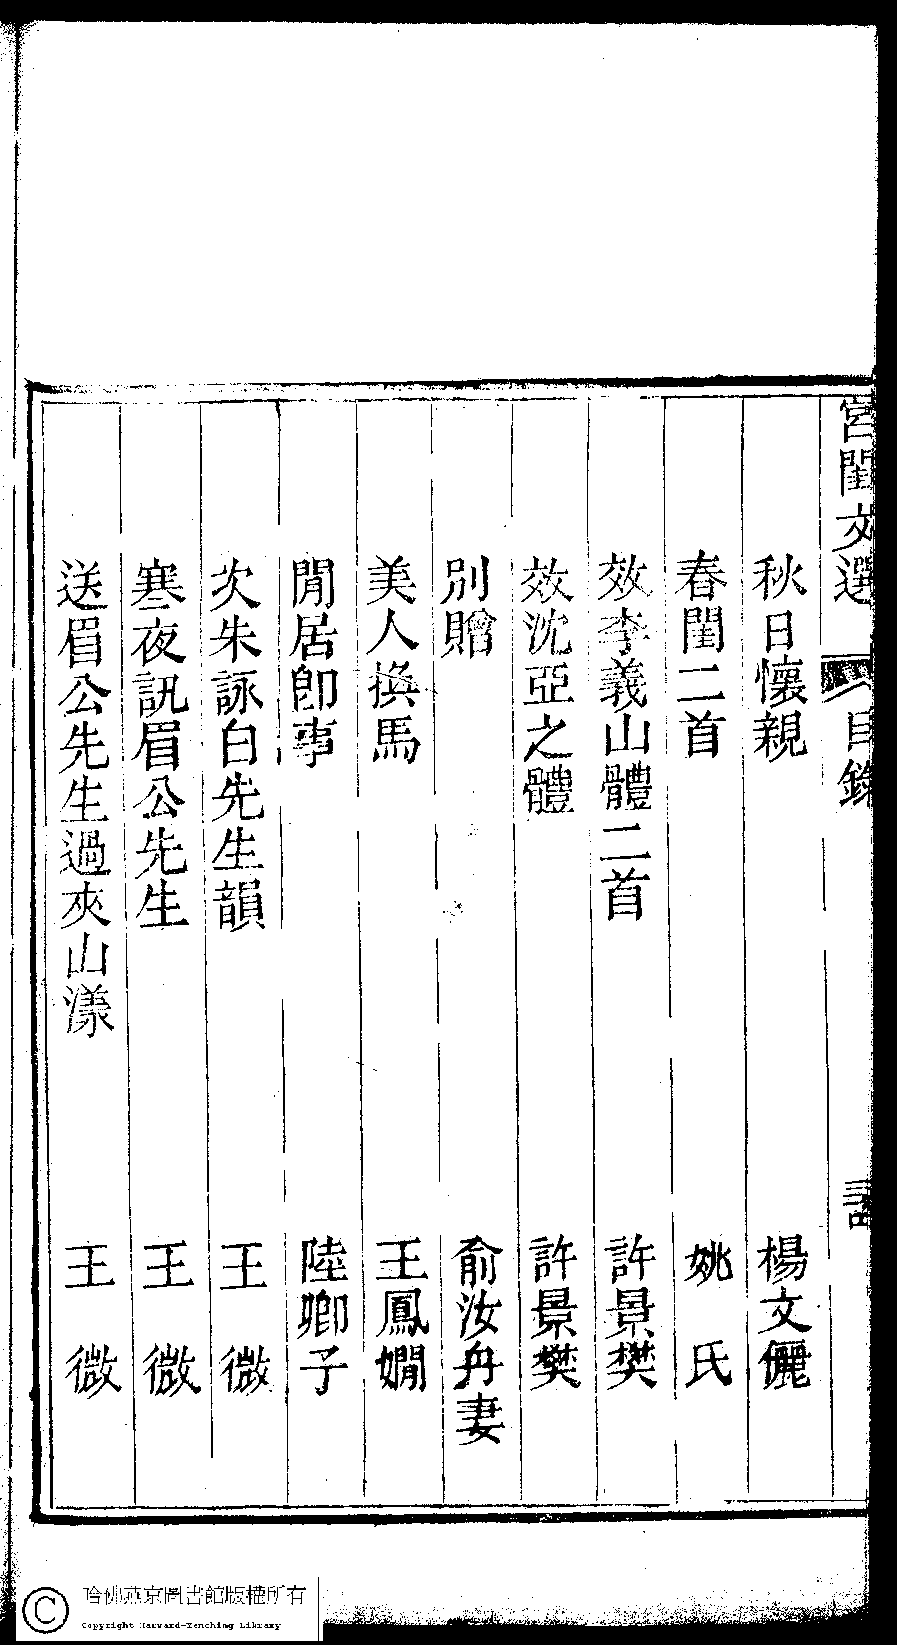 宮閨文選 目錄
秋日懷親 楊文儷
春閨二首 姚氏
效李義山體二首 許景樊
效沈亞之體 許景樊
別贈 俞汝舟妻
美人換馬 王鳳嫺
閒居卽事 陸卿子
次朱詠白先生韻 王微
寒夜訊眉公先生 王微
送眉公先生過夾山漾 王微
哈佛燕京圖書館版權所有
Copyright Harvard-Yenching Library